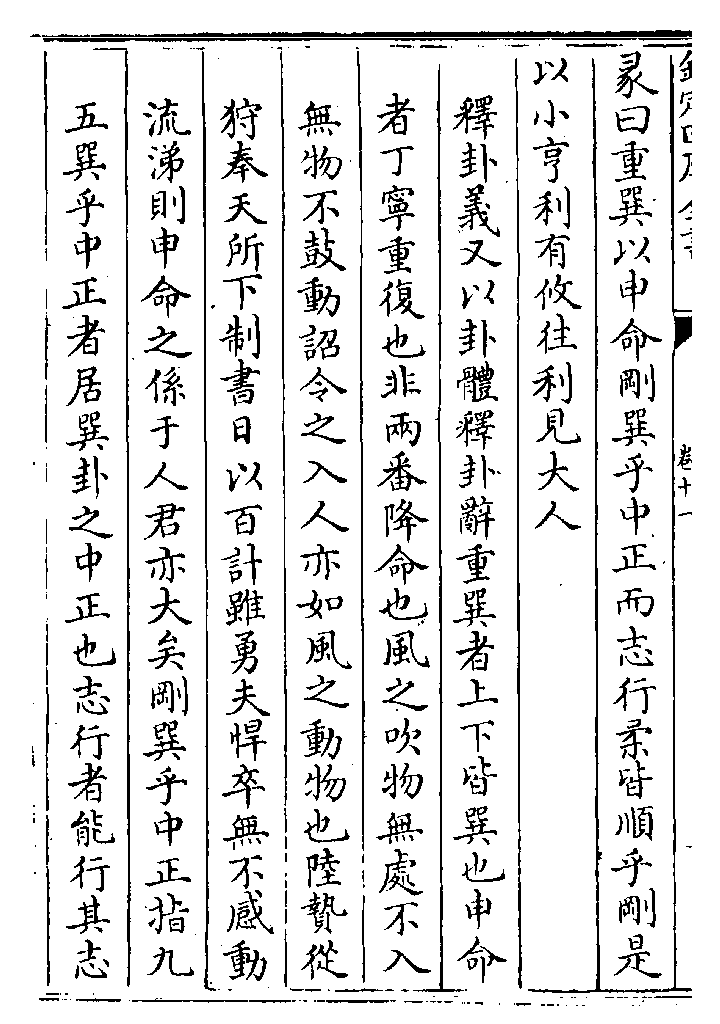 彖曰重巽以申命剛巽乎中正而志行柔皆順乎剛是
以小亨利有攸往利見大人
釋卦義又以卦體釋卦辭重巽者上下皆巽也申命
者丁寧重復也非兩番降命也風之吹物無處不入
無物不鼓動詔令之入人亦如風之動物也陸贄從
狩奉天所下制書日以百計雖勇夫悍卒無不感動
流涕則申命之係于人君亦大矣剛巽乎中正指九
五巽乎中正者居巽卦之中正也志行者能行其志
卷十一